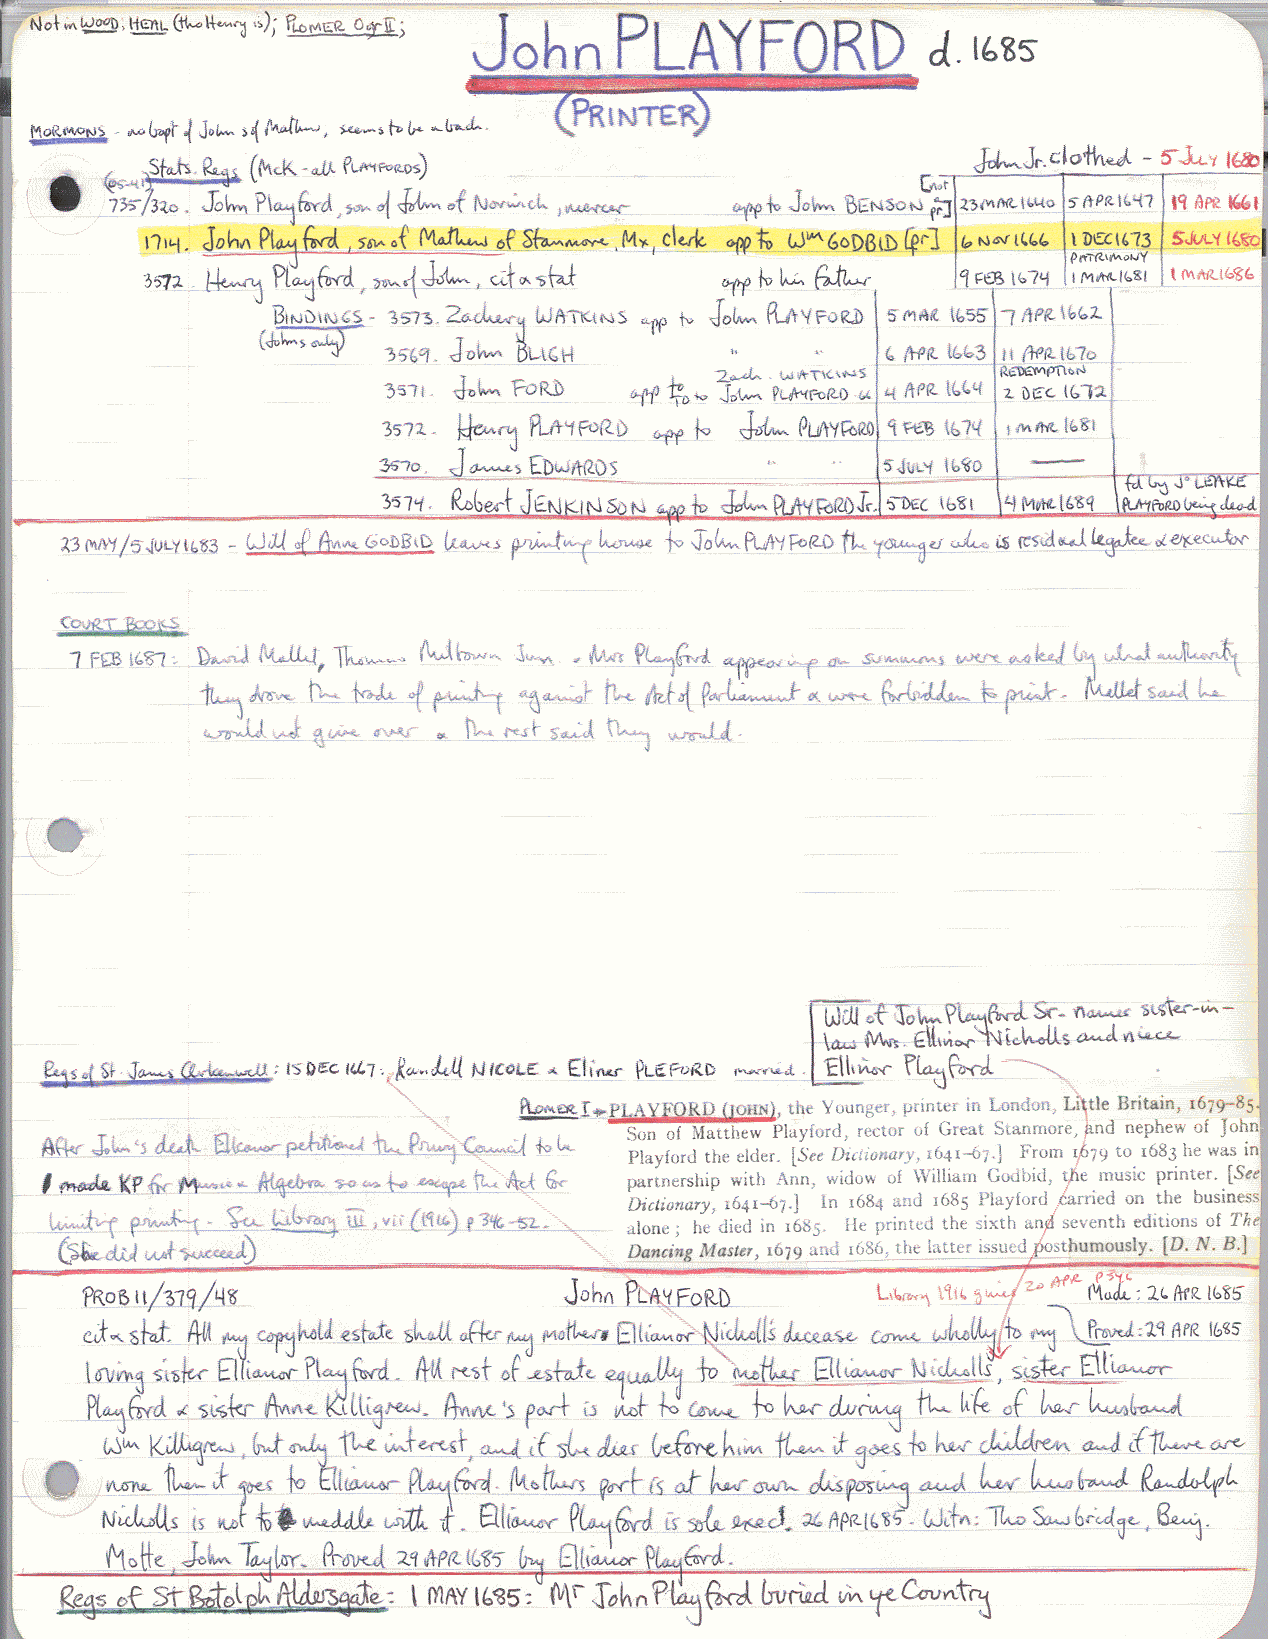 Not in WOOD; HEAL (tho Henry is); PLOMER O or II;
John PLAYFORD d. 1685
(PRINTER)
MORMONS - no bapt of John s of Mathew, seems to be a bach.
Stats. Regs (McK - all PLAYFORDS)
John Jr. Clothed - 5 JULY 1680
(05-41)
735/320. John Playford, son of John of Norwich, mercer app to John BENSON [not a pr] 23 MAR 1640 5 APR 1647 19 APR 1661
1714. John Playford, son of Mathew of Stanmore, Mx, clerk app to Wm GODBID [pr] 6 NOV 1666 1 DEC 1673 5 JULY 1680
PATRIMONY
3572. Henry Playford, son of John, cit & stat app to his father 9 FEB 1674 1 MAR 1681 1 MAR 1686
BINDINGS - 3573. Zachery WATKINS app to John PLAYFORD 5 MAR 1655 7 APR 1662
(Johns only)
3569. John BLIGH " " 6 APR 1663 11 APR 1670
Zach. WATKINS REDEMPTION
3571. John FORD app to to John PLAYFORD 4 APR 1664 2 DEC 1672
3572. Henry PLAYFORD app to John PLAYFORD 9 FEB 1674 1 MAR 1681
3570. James EDWARDS " " 5 JULY 1680 —
3574. Robert JENKINSON app to John PLAYFORD Jr. 5 DEC 1681 4 MAR 1689 fd by Jo LEAKE PLAYFORD being dead
23 MAY/5 JULY 1683 - Will of Anne GODBID leaves printing house to John PLAYFORD the younger who is residual legatee & executor
COURT BOOKS
7 FEB 1687: David Mallet, Thomas Milbourn Jun. & Mrs Playford appearing on summons were asked by what authority
they drove the trade of printing against the Act of Parliament & were forbidden to print. Mallet said he
would not give over & the rest said they would.
Will of John Playford Sr - names sister-in-
law Mrs. Ellinor Nicholls and niece
Ellinor Playford
Regs of St. James Clerkenwell: 15 DEC 1667: Randell NICOLE & Eliner PLEFORD married.
PLOMER I → PLAYFORD (JOHN), the Younger, printer in London, Little Britain, 1679-85.
Son of Matthew Playford, rector of Great Stanmore, and nephew of John
Playford the elder. [See Dictionary, 1641-67.] From 1679 to 1683 he was in
partnership with Ann, widow of William Godbid, the music printer. [See
Dictionary, 1641-67.] In 1684 and 1685 Playford carried on the business
alone; he died in 1685. He printed the sixth and seventh editions of The
Dancing Master, 1679 and 1686, the latter issued posthumously. [D. N. B.]
After John's death Elleanor petitioned the Privy Council to be
made KP for Music & Algebra so as to escape the Act for
limiting printing. See Library III, vii (1916) p 346-52.
(She did not succeed)
PROB 11/379/48 John PLAYFORD Library 1916 gives 20 APR p 346 Made: 26 APR 1685
cit & stat. All my copyhold estate shall after my mothers Ellianor Nicholls decease come wholly to my Proved: 29 APR 1685
loving sister Ellianor Playford. All rest of estate equally to mother Ellianor Nicholls, sister Ellianor
Playford & sister Anne Killigrew. Anne's part is not to come to her during the life of her husband
Wm Killigrew, but only the interest, and if she dies before him then it goes to her children and if there are
none then it goes to Ellianor Playford. Mothers part is at her own disposing and her husband Randolph
Nicholls is not to meddle with it. Ellianor Playford is sole exec. 26 APR 1685. Witn: Tho Sawbridge, Benj.
Motte, John Taylor. Proved 29 APR 1685 by Ellianor Playford.
Regs of St Botolph Aldersgate: 1 MAY 1685: Mr John Playford buried in ye Country